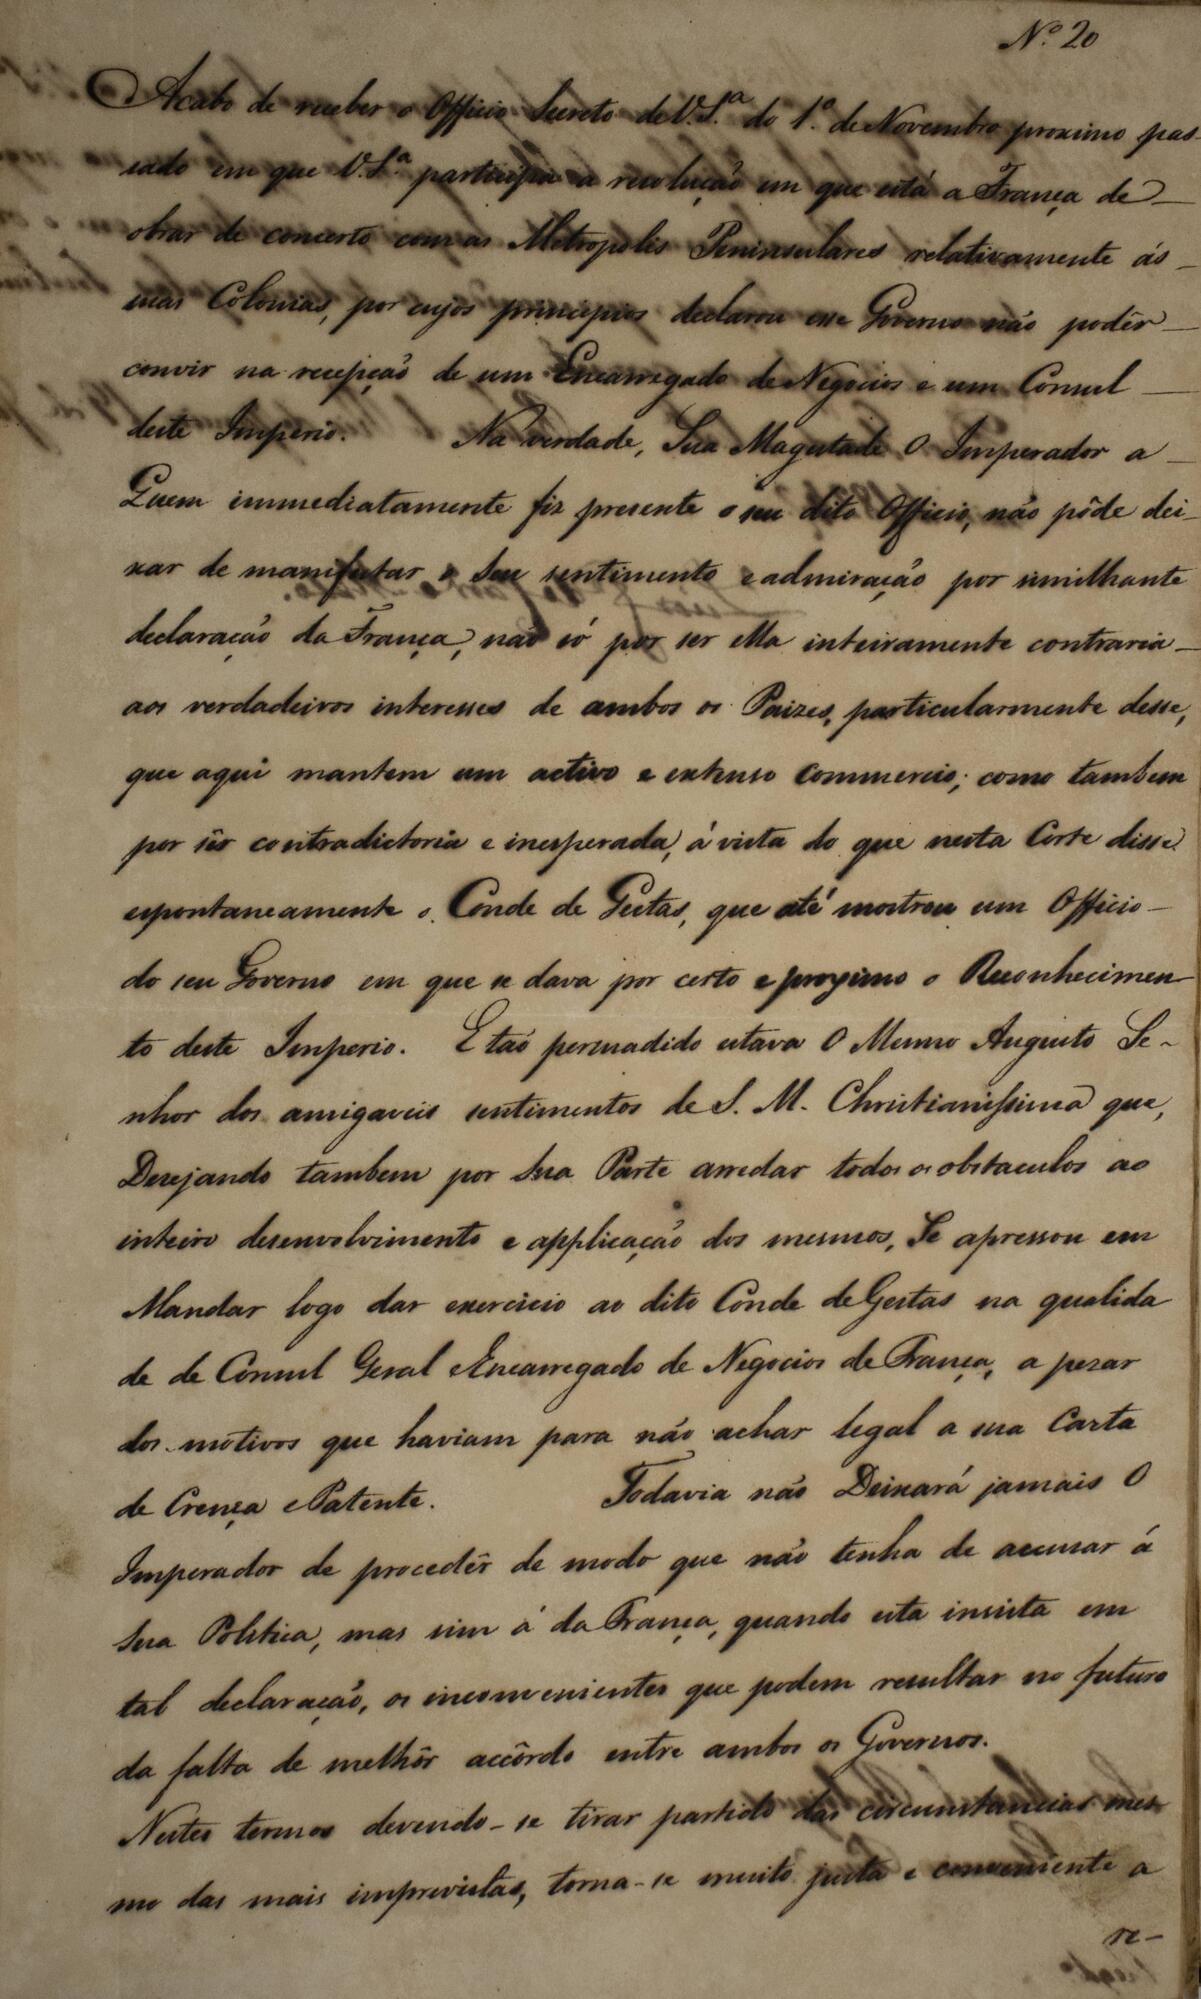 Nº 20
Acabo de receber o Officio Secreto de V. S.ª do 1.º de Novembro proximo pas-
sado em que V. S.ª participa a resolução em que está a França de
obrar de concerto com as Metropolis Peninsulares relativamente ás
suas Colonias, por cujos principios declarou esse Governo não podêr
convir na recepção de um Encarregado de Negocios e um Consul
deste Imperio. Na verdade, Sua Magestade O Imperador a
Quem immediatamente fiz presente o seu dito Officio, não pôde dei-
xar de manifestar o Seu sentimento e admiração por similhante
declaração da França, não só por ser ella inteiramente contraria
aos verdadeiros interesses de ambos os Paizes, particularmente desse,
que aqui mantem um activo e extenso commercio; como tambem
por sêr contradictoria e inesperada, á vista do que nesta Corte disse
espontaneamente o Conde de Gestas, que até mostrou um Officio
do seu Governo em que se dava por certo e proximo o Reconhecimen
to deste Imperio. E taõ persuadido estava O Mesmo Augusto Se-
nhor dos amigaveis sentimentos de S. M. Christianissima que,
Desejando tambem por Sua Parte arredar todos os obstaculos ao
inteiro desenvolvimento e applicação dos mesmos, Se apressou em
Mandar logo dar exercicio ao dito Conde de Gestas na qualida
de de Consul Geral e Encarregado de Negocios de França, a pezar
dos motivos que haviam para não achar legal a sua Carta
de Crença e Patente. Todavia não Deixará jamais O
Imperador de procedêr de modo que não tenha de accusar á
Sua Politica, mas sim á da França, quando esta insista em
tal declaração, os inconvenientes que podem resultar no futuro
da falta de melhôr accôrdo entre ambos os Governos.
Nestes termos devendo-se tirar partido das circumstancias mes
mo das mais imprevistas, torna-se muito justa e conveniente a
re-